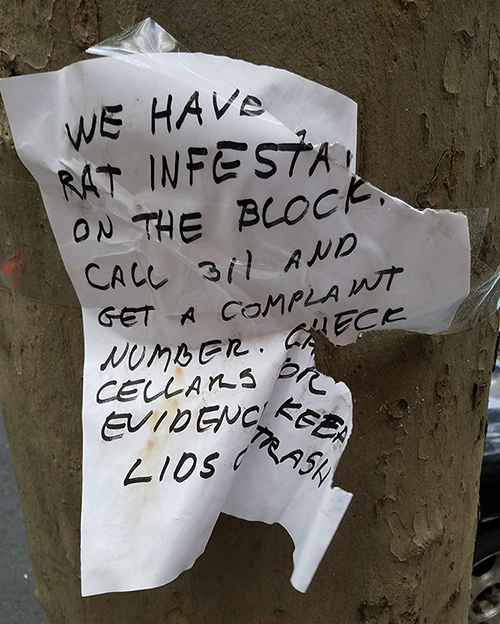 WE HAVE
RAT INFESTA
ON THE BLOCK.
CALL 311 AND
GET A COMPLAINT
NUMBER. CHECK
CELLARS OR
EVIDENC KEEP
LIDS TRASH